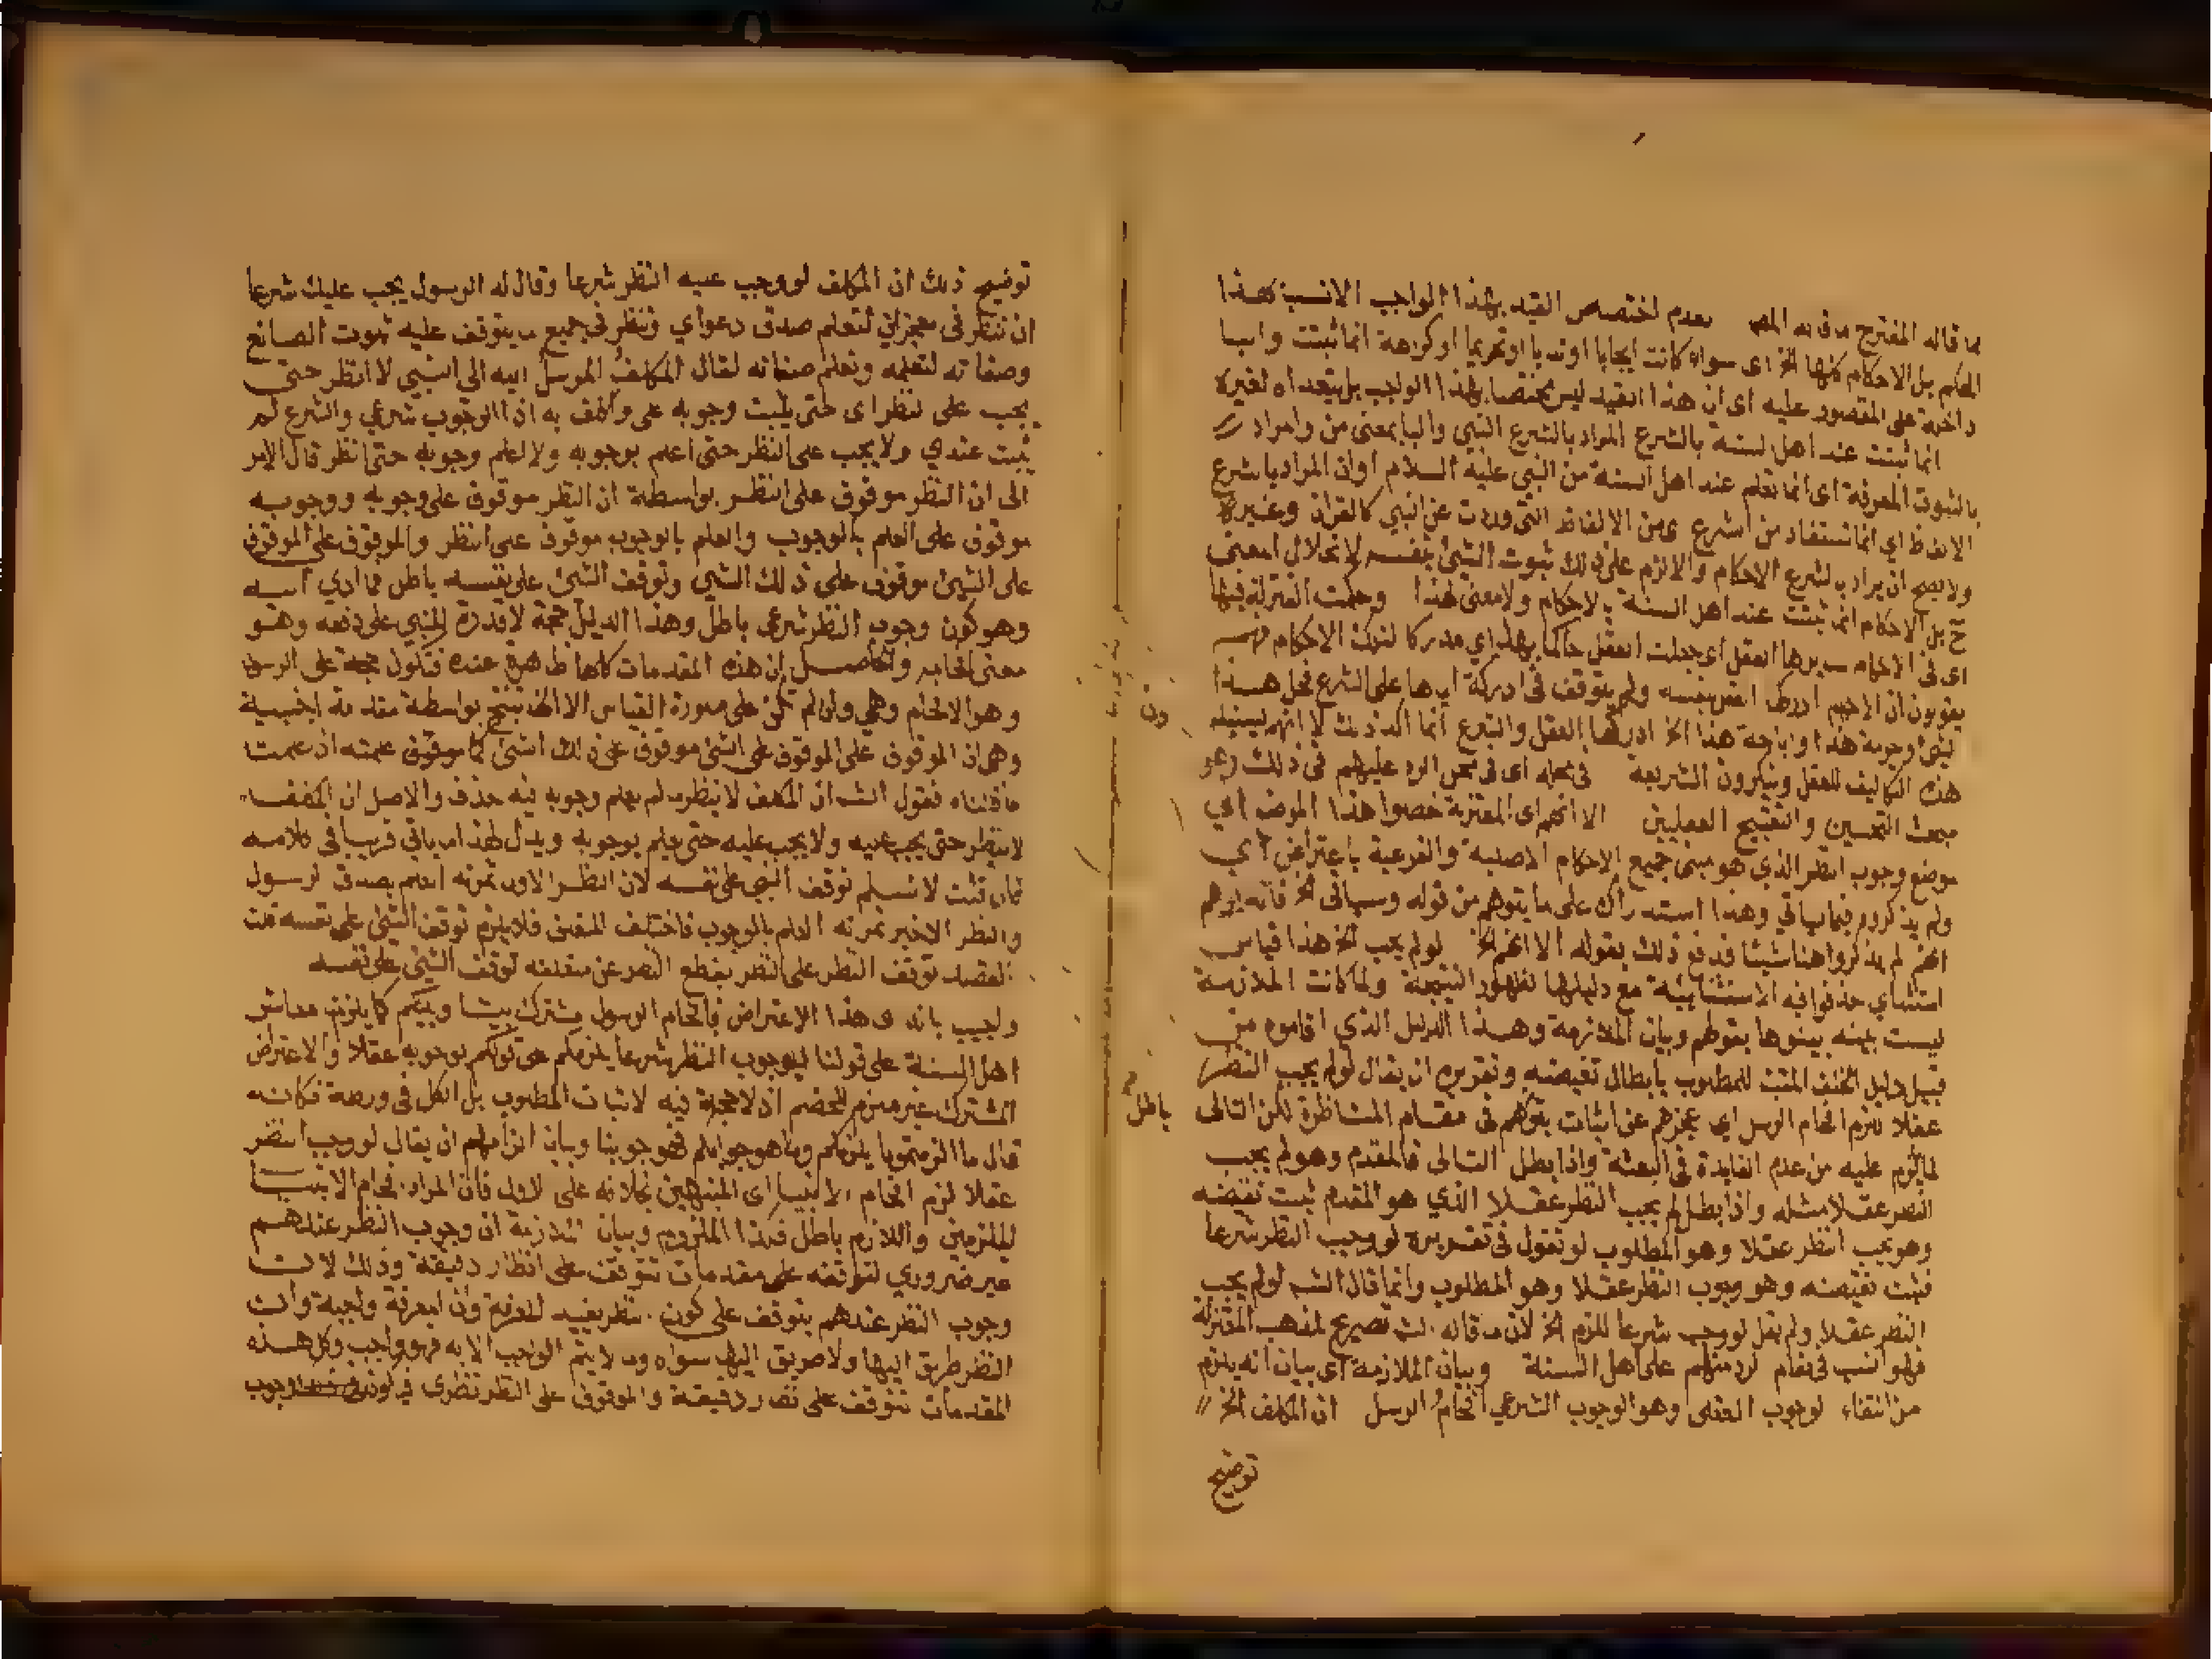 ما قاله المقترح ما قاله المص بعدم اختصاص القيد بهذا الواجب الانسب هذا
الحكم بل الاحكام كلها الخ اى سواء كانت ايجابا او ندبا او تحريما او كراهة انما ثبتت والبا
داخلة على المقصور عليه اى ان هذا القيد ليس مختصا بهذا الواجب بل يتعداه لغيره
انما ثبتت عند اهل السنة بالشرع المراد بالشرع النبي والبا بمعنى من والمراد
بالثبوت المعرفة اى انما تعلم عند اهل السنة من النبي عليه السلام او ان المراد بالشرع
الالفاظ اي انما تستفاد من الشرع اى من الالفاظ التى وردت عن النبي كالقران وغيره
ولا يصح ان يراد بالشرع الاحكام والا لزم على ذلك ثبوت الشئ بنفسه لانحلال المعنى
ح بل الاحكام انما ثبتت عند اهل السنة بالاحكام ولا معنى لهذا وحكمت المعتزلة فيها
اى فى الاحكام سايرها العقل اى جعلت العقل حاكما بها اي مدركا لتلك الاحكام فهم
يقولون ان الاحكام ادركها العقل بنفسه ولم يتوقف فى ادركه اياها على الشرع فحل هذا
الشئ وحرمة هذا واباحة هذا الخ ادركها العقل والشرع انما اكد ذلك لا انهم يستندون
هذه التكاليف للعقل وينكرون الشريعه فى محله اى فى محل الرد عليهم فى ذلك وهو
مبحث التحسين والتقبيح العقليين الا انهم اى المعتزلة خصوا هذا الموضع اي
موضع وجوب النظر الذي هو مبنى جميع الاحكام الاصلية والفرعية باعتراض اي
ولم يذكروه فيما ياتي وهذا استدراك على ما يتوهم من قوله وسياتى الخ فانه يوهم
انهم لم يذكروا هنا شيئا فدفع ذلك بقوله الا انهم الخ لو لم يجب الخ هذا قياس
استثناي حذفوا فيه الاستثنائية مع دليلها لظهور النتيجة ولما كانت الملازمة
ليست بينه بينوها بقولهم وبيان الملازمة وهذا الدليل الذي اقاموه من
قبيل دليل الخلف المثبت للمطلوب بابطال نقيضه وتقريره ان يقال لو لم يجب النظر
عقلا للزم افحام الرسل اي عجزهم عن اثبات بعثتهم فى مقام المناظرة لكن التالى باطل
لما يلزم عليه من عدم الفايدة فى البعثة واذا بطل التالى فالمقدم وهو لم يجب
النظر عقلا مثله واذا بطل لم يجب النظر عقلا الذي هو المقدم ثبت نقيضه
وهو يجب النظر عقلا وهو المطلوب او تقول فى تقريره لو وجب النظر شرعا
فثبت نقيضه وهو وجوب النظر عقلا وهو المطلوب وانما قال الش لو لم يجب
النظر عقلا ولم يقل لو وجب شرعا للزم الخ لان ما قاله الش تصريح لمذهب المعتزلة
فهو انسب فى مقام الرد منهم على اهل السنة وبيان الملازمة اى بيان انه يلزم
من انتفاء الوجوب العقلى وهو الوجوب الشرعي افحام الرسل ان المكلف الخ
توضيح
توضيح ذلك ان المكلف لو وجب عليه النظر شرعا وقال له الرسول يجب عليك شرعا
ان تنظر فى معجزاتي لتعلم صدق دعواي وتنظر فى جميع ما يتوقف عليه ثبوت الصانع
وصفاته لتعلمه وتعلم صفاته لقال المكلف المرسل اليه الى النبي لا انظر حتى
يجب على النظر اى حتى يثبت وجوبه على واكلف به اذ الوجوب شرعي والشرع لم
يثبت عندي ولا يجب على النظر حتى اعلم بوجوبه ولا اعلم وجوبه حتى انظر قال الامر
الى ان النظر موقوف على النظر بواسطة ان النظر موقوف على وجوبه ووجوبه
موقوف على العلم بالوجوب والعلم بالوجوب موقوف على النظر والموقوف على الموقوف
على الشئ موقوف على ذلك الشئ وتوقف الشئ على نفسه باطل فما ادي اليه
وهو كون وجوب النظر شرعي باطل وهذا الدليل حجة لا قدرة للنبي على دفعه وهو
معنى افحامه والحاصل ان هذه المقدمات كلها ظاهرة عنده فتكون حجة على الرسل
وهو الافحام وهي وان لم تكن على صورة القياس الا انها تنتج بواسطة مقدمة اجنبية
وهى ان الموقوف على الموقوف على الشئ موقوف على ذلك الشئ كما سبق علمته اذ علمت
ما قلناه فقول الش ان المكلف لا ينظر ما لم يعلم وجوبه فيه حذف والاصل ان المكلف
لا ينظر حتى يجب عليه ولا يجب عليه حتى يعلم بوجوبه ويدل لهذا ما ياتي قريبا فى كلامه
فان قلت لا نسلم توقف الشئ على نفسه لان النظر الاول ثمرته العلم بصدق الرسول
والنظر الاخير ثمرته العلم بالوجوب فاختلف المعنى فلا يلزم توقف الشئ على نفسه قلت
القصد توقف النظر على النظر بقطع النظر عن متعلقه توقف الشئ على نفسه
واجيب بانه اى هذا الاعتراض فافحام الرسول مشترك بيننا وبينكم كما يلزمنا معاشر
اهل السنة على قولنا بوجوب النظر شرعا يلزمكم على قولكم بوجوبه عقلا والاعتراض
المشترك غير ملزم للخصم اذ لا حجة فيه لاثبات المطلوب بل الكل فى ورطة فكانه
قال ما الزمتمونا يلزمكم وما هو جوابكم فهو جوبنا وبيان الزامهم ان يقال لو وجب النظر
عقلا لزم افحام الانبيا اى المنبهين بخلافه على الاول فان المراد افحام الانبيا
للملزمين واللازم باطل فكذا الملزوم وبيان الملازمة ان وجوب النظر عندهم
غير ضروري لتوقفه على مقدمات تتوقف على انظار دقيقة وذلك لان
وجوب النظر عندهم يتوقف على كون النظر يفيد للعلم وان المعرفة واجبة وان
النظر طريق اليها ولا طريق اليها سواه وما لا يتم الواجب الا به فهو واجب وكل هذه
المقدمات تتوقف على انظار دقيقة والموقوف على النظر نظرى فيكون وجوب